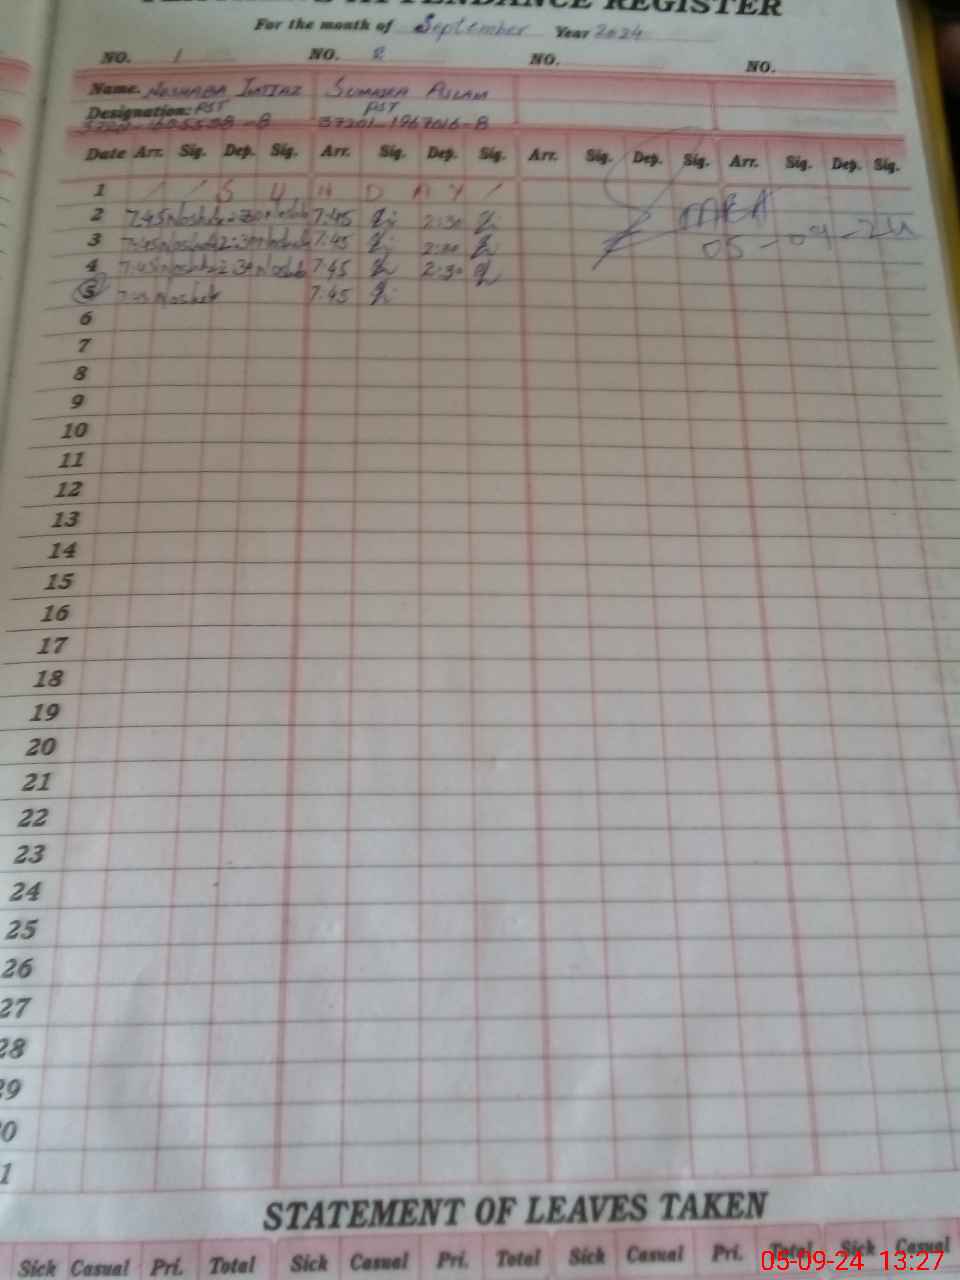 ATTENDANCE REGISTER
For the month of September Year 2024
NO. 1 NO. 2 NO. NO.
Name. NOSHABA IMTIAZ SUMAIRA ASLAM
Designation: PST PST
37201-1967016-8
Date Arr. Sig. Dep. Sig. Arr. Sig. Dep. Sig. Arr. Sig. Dep. Sig. Arr. Sig. Dep. Sig.
1 / / S U N D A Y /
2 7.45 Noshaba 2:30 Noshaba 7.45 2:30
3 7:45 Noshaba 2:30 Noshaba 7.45 2:30
4 7:45 Noshaba 2:30 Noshaba 7.45 2:30
05-09-24
5 7:45 Noshaba 7.45
6
7
8
9
10
11
12
13
14
15
16
17
18
19
20
21
22
23
24
25
26
27
28
29
30
31
STATEMENT OF LEAVES TAKEN
Sick Casual Pri. Total Sick Casual Pri. Total Sick Casual Pri. Total Sick Casual
05-09-24 13:27